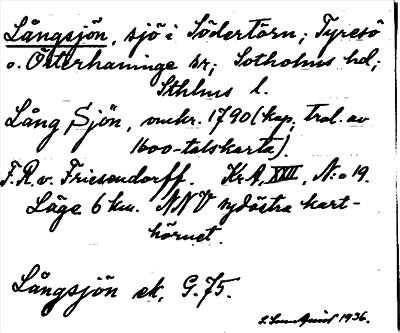 Långsjön, sjö i Södertörn; Tyresö
o. Österhaninge sr; Sotholms hd;
Sthlms l.
Lång Sjön, omkr. 1790 (kop. trol. av
1600-talskarta).
F. R. v. Friesendorff. Kr. A, XXII, N:o 19.
Läge 6 km. NNV nydöstra kart-
hörnet.
Långsjön ek, G. 75.
1936.